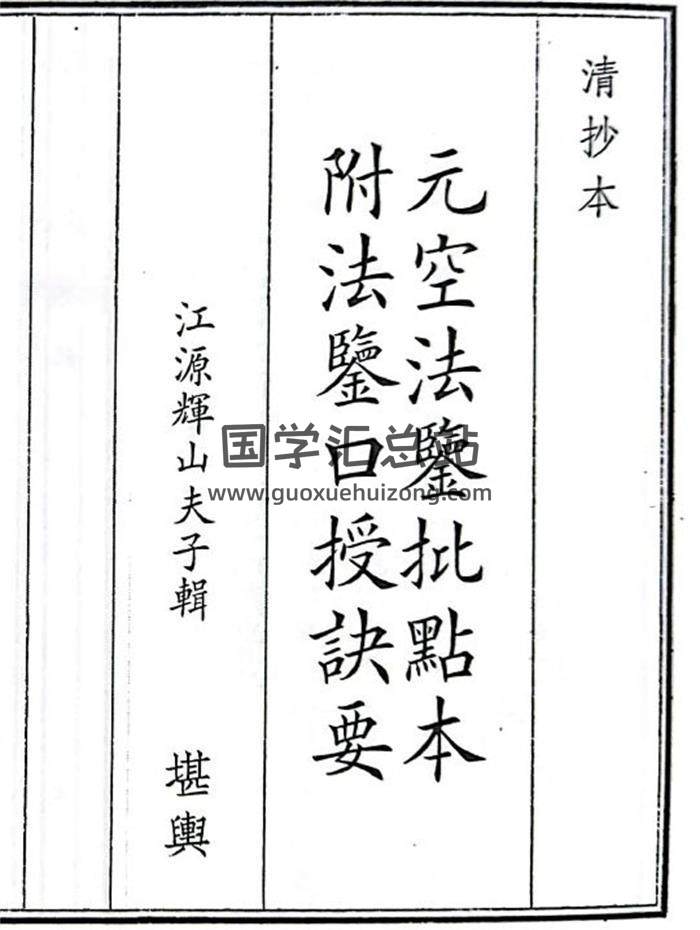 清抄本
元空法鑒批點本
附法鑒口授訣要
江源輝山夫子輯
堪輿
国学汇总站
www.guoxuehuizong.com